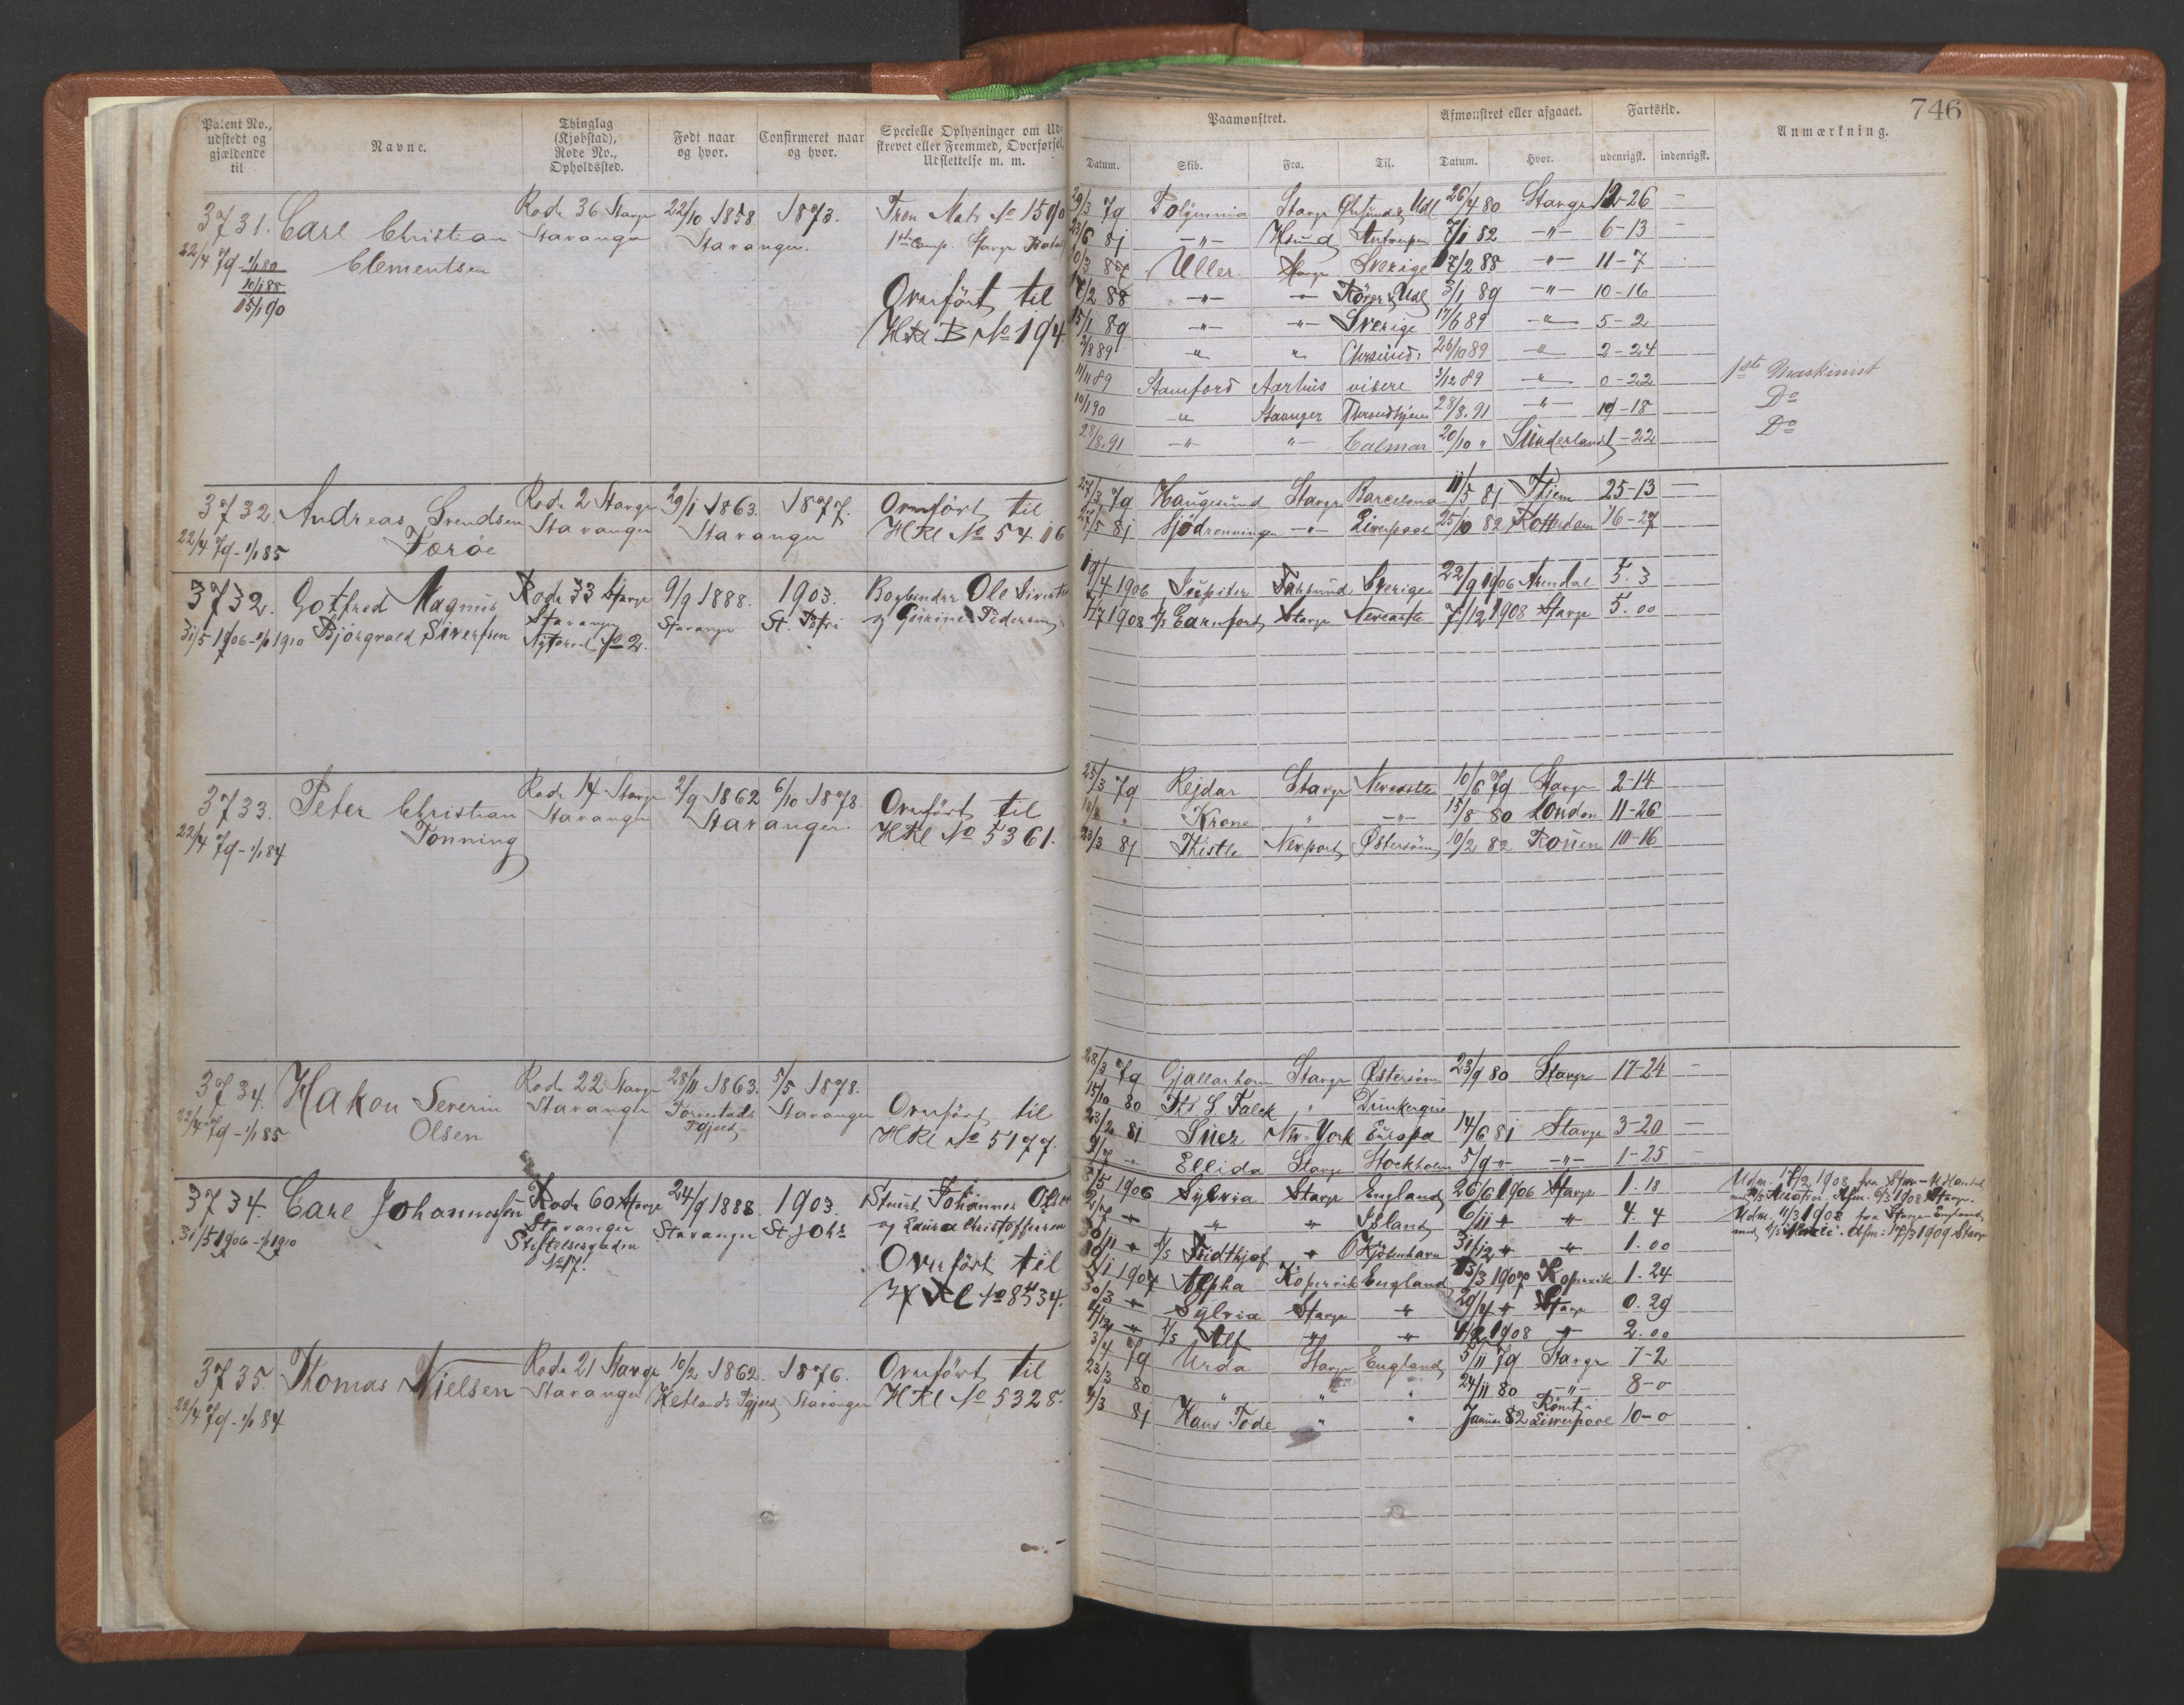 Patent No., udstedt og gjældende til
Navne.
Thinglag (Kjøbstad), Rode No., Opholdssted.
Født naar og hvor.
Confirmeret naar og hvor.
Specielle Oplysninger om Udstrevet eller Fremmed, Overførsel, Udslettelse m. m.
Paamønstret.
Afmønstret eller afgaaet.
Fartstid.
Anmærkning.
746
Datum. Skib. Fra. Til. Datum. Hvor. udenrigsk. indenrigsk.
3731. Carl Christian Rode 36 Stavgr 22/10 1858. 1873.
22/4 79 - 1/1 80 Clementsen Stavanger Stavanger.
10/1 88
15/1 90
Overført til
HRl B No 194.
29/3 79 Polymnia Stavgr 26/4 80 Stavgr 12-26 —
23/6 81 —"— Hsund Antwerpen 7/1 82 —"— 6-13 —
Uller Stavgr Sverige 7/2 88 —"— 11-7
7/2 88 —"— —"— 3/1 89 —"— 10-16
15/1 89 —"— —"— Sverige 17/6 89 —"— 5-2
2/8 89 " " 26/10 89 —"— 2-24
11/11 89 Stamford Aarhus videre 3/12 89 —"— 0-22 1ste Maskinist
10/1 90 " Stavanger Throndhjem 28/8.91 —"— 19-18 Do
28/8.91 —"— "— Calmar 20/10 " Sunderland 1-22 Do
3732. Andreas Svendsen Rode 2 Stavgr 29/1 1863. 1877. Overført til
22/4 79 - 1/1 85 Færøe Stavanger Stavanger HRl No 5416
27/3 79 Haugesund Stavgr Barcelona 11/5 81 Thjem 25-13 —
27/5 81 Sjødronningen —"— Liverpool 25/10 82 Rotterdam 16-27
3732. Gotfred Magnus Rode 33 Stavgr 9/9 1888. 1903. Bogbinder Ole Sivertsen
31/5 1906 - 1/1 1910 Bjørgvald Sivertsen Stavanger Stavanger St. Petri og Gurine Pedersen
Nytorvet No 2.
19/4 1906 Jupiter Farsund Sverige 22/9 1906 Arendal 5. 3
1908 Stavgr Newcastle 7/12 1908 Stavgr 5. 00
3733. Peter Christian Rode 14 Stavgr 2/9 1862 6/10 1878. Overført til
22/4 79 - 1/1 84 Tonning Stavanger Stavanger. HRl No 5361.
25/3 79 Rejdar Stavgr Newcastle 10/6 79 Stavgr 2-14
Krone " —"— 15/8 80 London 11-26
23/3 81 Thistle Newport Østersøen 10/2 82 Rouen 10-16
3734. Hakon Severin Rode 22 Stavgr 28/11 1863. 5/5 1878.
22/4 79 - 1/1 85 Olsen Stavanger Torvestads Pgjeld Stavanger Overført til
HRl No 5177.
28/3 79 Gjallarhorn Stavgr Østersøen 23/9 80 Stavgr 17-24 —
15/10 80 Th S Falck " Dunkerque
23/2 81 Suez New-York Europa 14/6 81 Stavgr 3-20 —
9/7 " Ellida Stavgr Stockholm 5/9 " —"— 1-25
3734. Carl Johannessen Rode 60 Stavgr 24/9 1888 1903. Stuert Johannes Olsen
31/5 1906 - 1/1 1910 Stavanger Stavanger St Johs og Laura Christoffersen
Stiftelsesgaden
No 17.
Overført til
HRl No 8434.
1906 Sylvia Stavgr England 26/6 1906 Stavgr 1. 18
" " Island 6/11 " " 4. 4
Fridthjof " Kjøbenhavn 31/12 " " 1. 00
1907 Alpha Kopervik England 13/3 1907 Kopervik 1. 24
30/3 " Sylvia Stavgr " 29/4 " Stavgr 0. 29
4/12 " Alf " " 4/2 1908 " 2. 00
3735. Thomas Nielsen Rode 21 Stavgr 10/2 1862. 1876. Overført til
22/4 79 - 1/1 84 Stavanger Hetlands Pgjeld Stavanger HRl No 5328.
3/4 79 Urda Stavgr England 5/11 79 Stavgr 7-2
23/3 80 " " " 24/11 80 —"— 8-0
4/3 81 Hans Tode " " Januar 82 Rømt i Liverpool 10-0